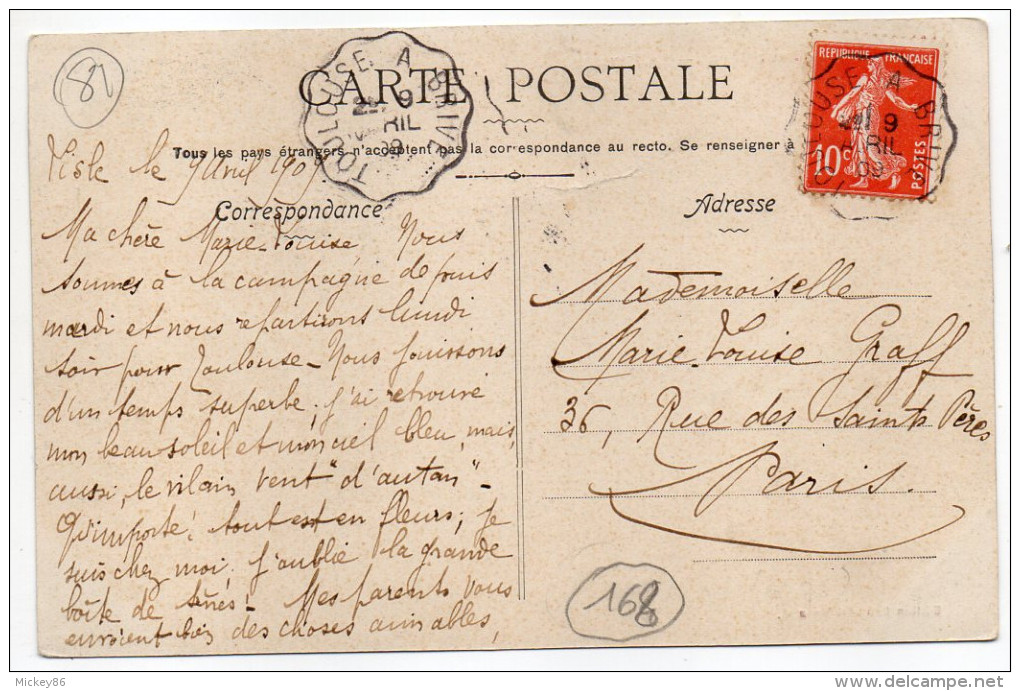 81
CARTE POSTALE
TOULOUSE A BRIVE
9
AVRIL
09
RÉPUBLIQUE FRANÇAISE
10c
POSTES
TOULOUSE A BRIVE
9
AVRIL
09
Tous les pays étrangers n'acceptent pas la correspondance au recto. Se renseigner à
Correspondance
Adresse
l'Isle le 9 Avril 1909
Ma chère Marie-Louise Nous
sommes à la campagne depuis
mardi et nous repartirons lundi
soir pour Toulouse - Nous jouissons
d'un temps superbe, j'ai retrouvé
mon beau soleil et mon ciel bleu, mais,
aussi, le vilain vent "d'autan" -
Qu'importe! tout est en fleurs; je
suis chez moi. J'oublie la grande
boîte de Mes parents vous
envoient des choses aimables,
Mademoiselle
Marie Louise Graff
36, Rue des Saints Pères
Paris.
168
Mickey86
www.delcampe.net